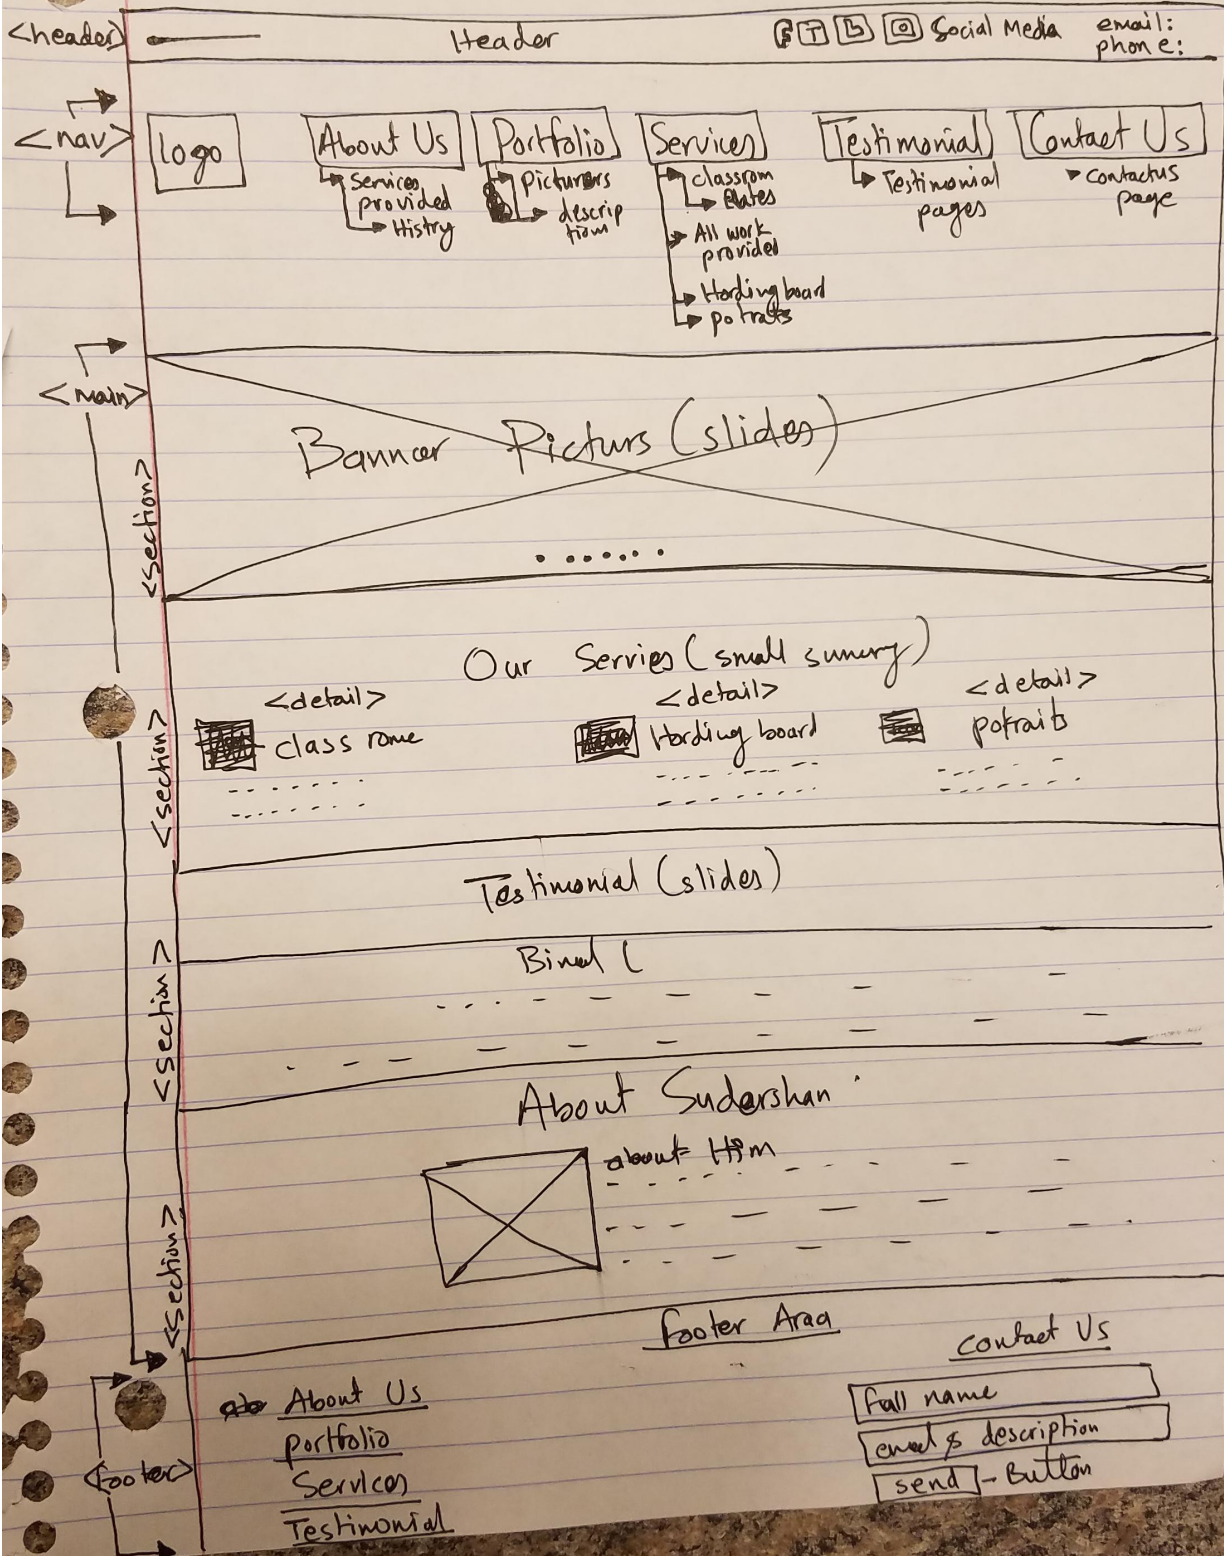 <header>
Header
F T b Social Media
email:
phone:
<nav>
logo
About Us
Services
provided
Histry
Portfolio
picturers
descrip
tion
Services
classrom
Plates
All work
provided
Hording board
potraits
Testimonial
Testimonial
pages
Contact Us
contactus
page
<main>
<section>
Banner Picturs (slides)
<section>
Our Servies (small sumery)
<detail> <detail> <detail>
class rome Hording board potraits
Testimonial (slides)
<section>
About Sudarshan
about Him
<section>
Footer Araa
<footer>
About Us
portfolio
Services
Testimonial
Contact Us
Full name
email & description
send - Button